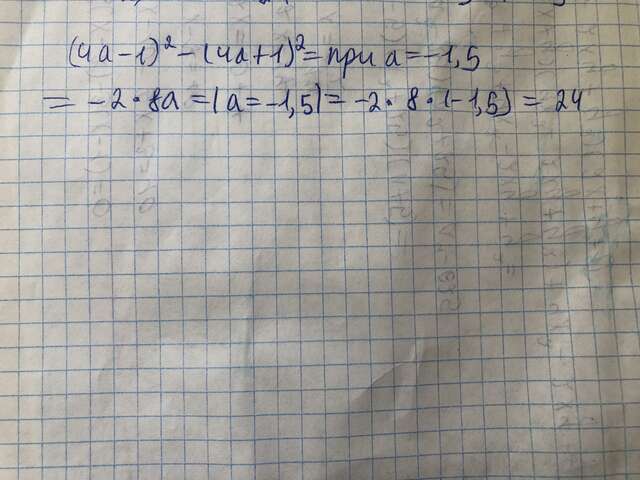 (4a-1)²-(4a+1)²= при a=-1,5
= -2·8a =|a=-1,5|= -2·8·(-1,5) = 24